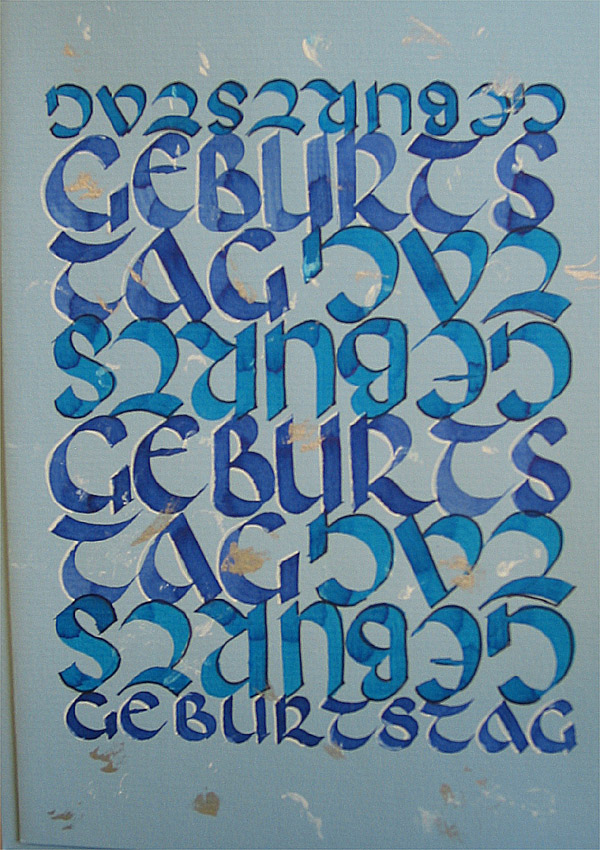 GEBURTSTAG
GEBURTS
TAG TAG
GEBURTS
GEBURTS
TAG TAG
GEBURTS
GEBURTSTAG